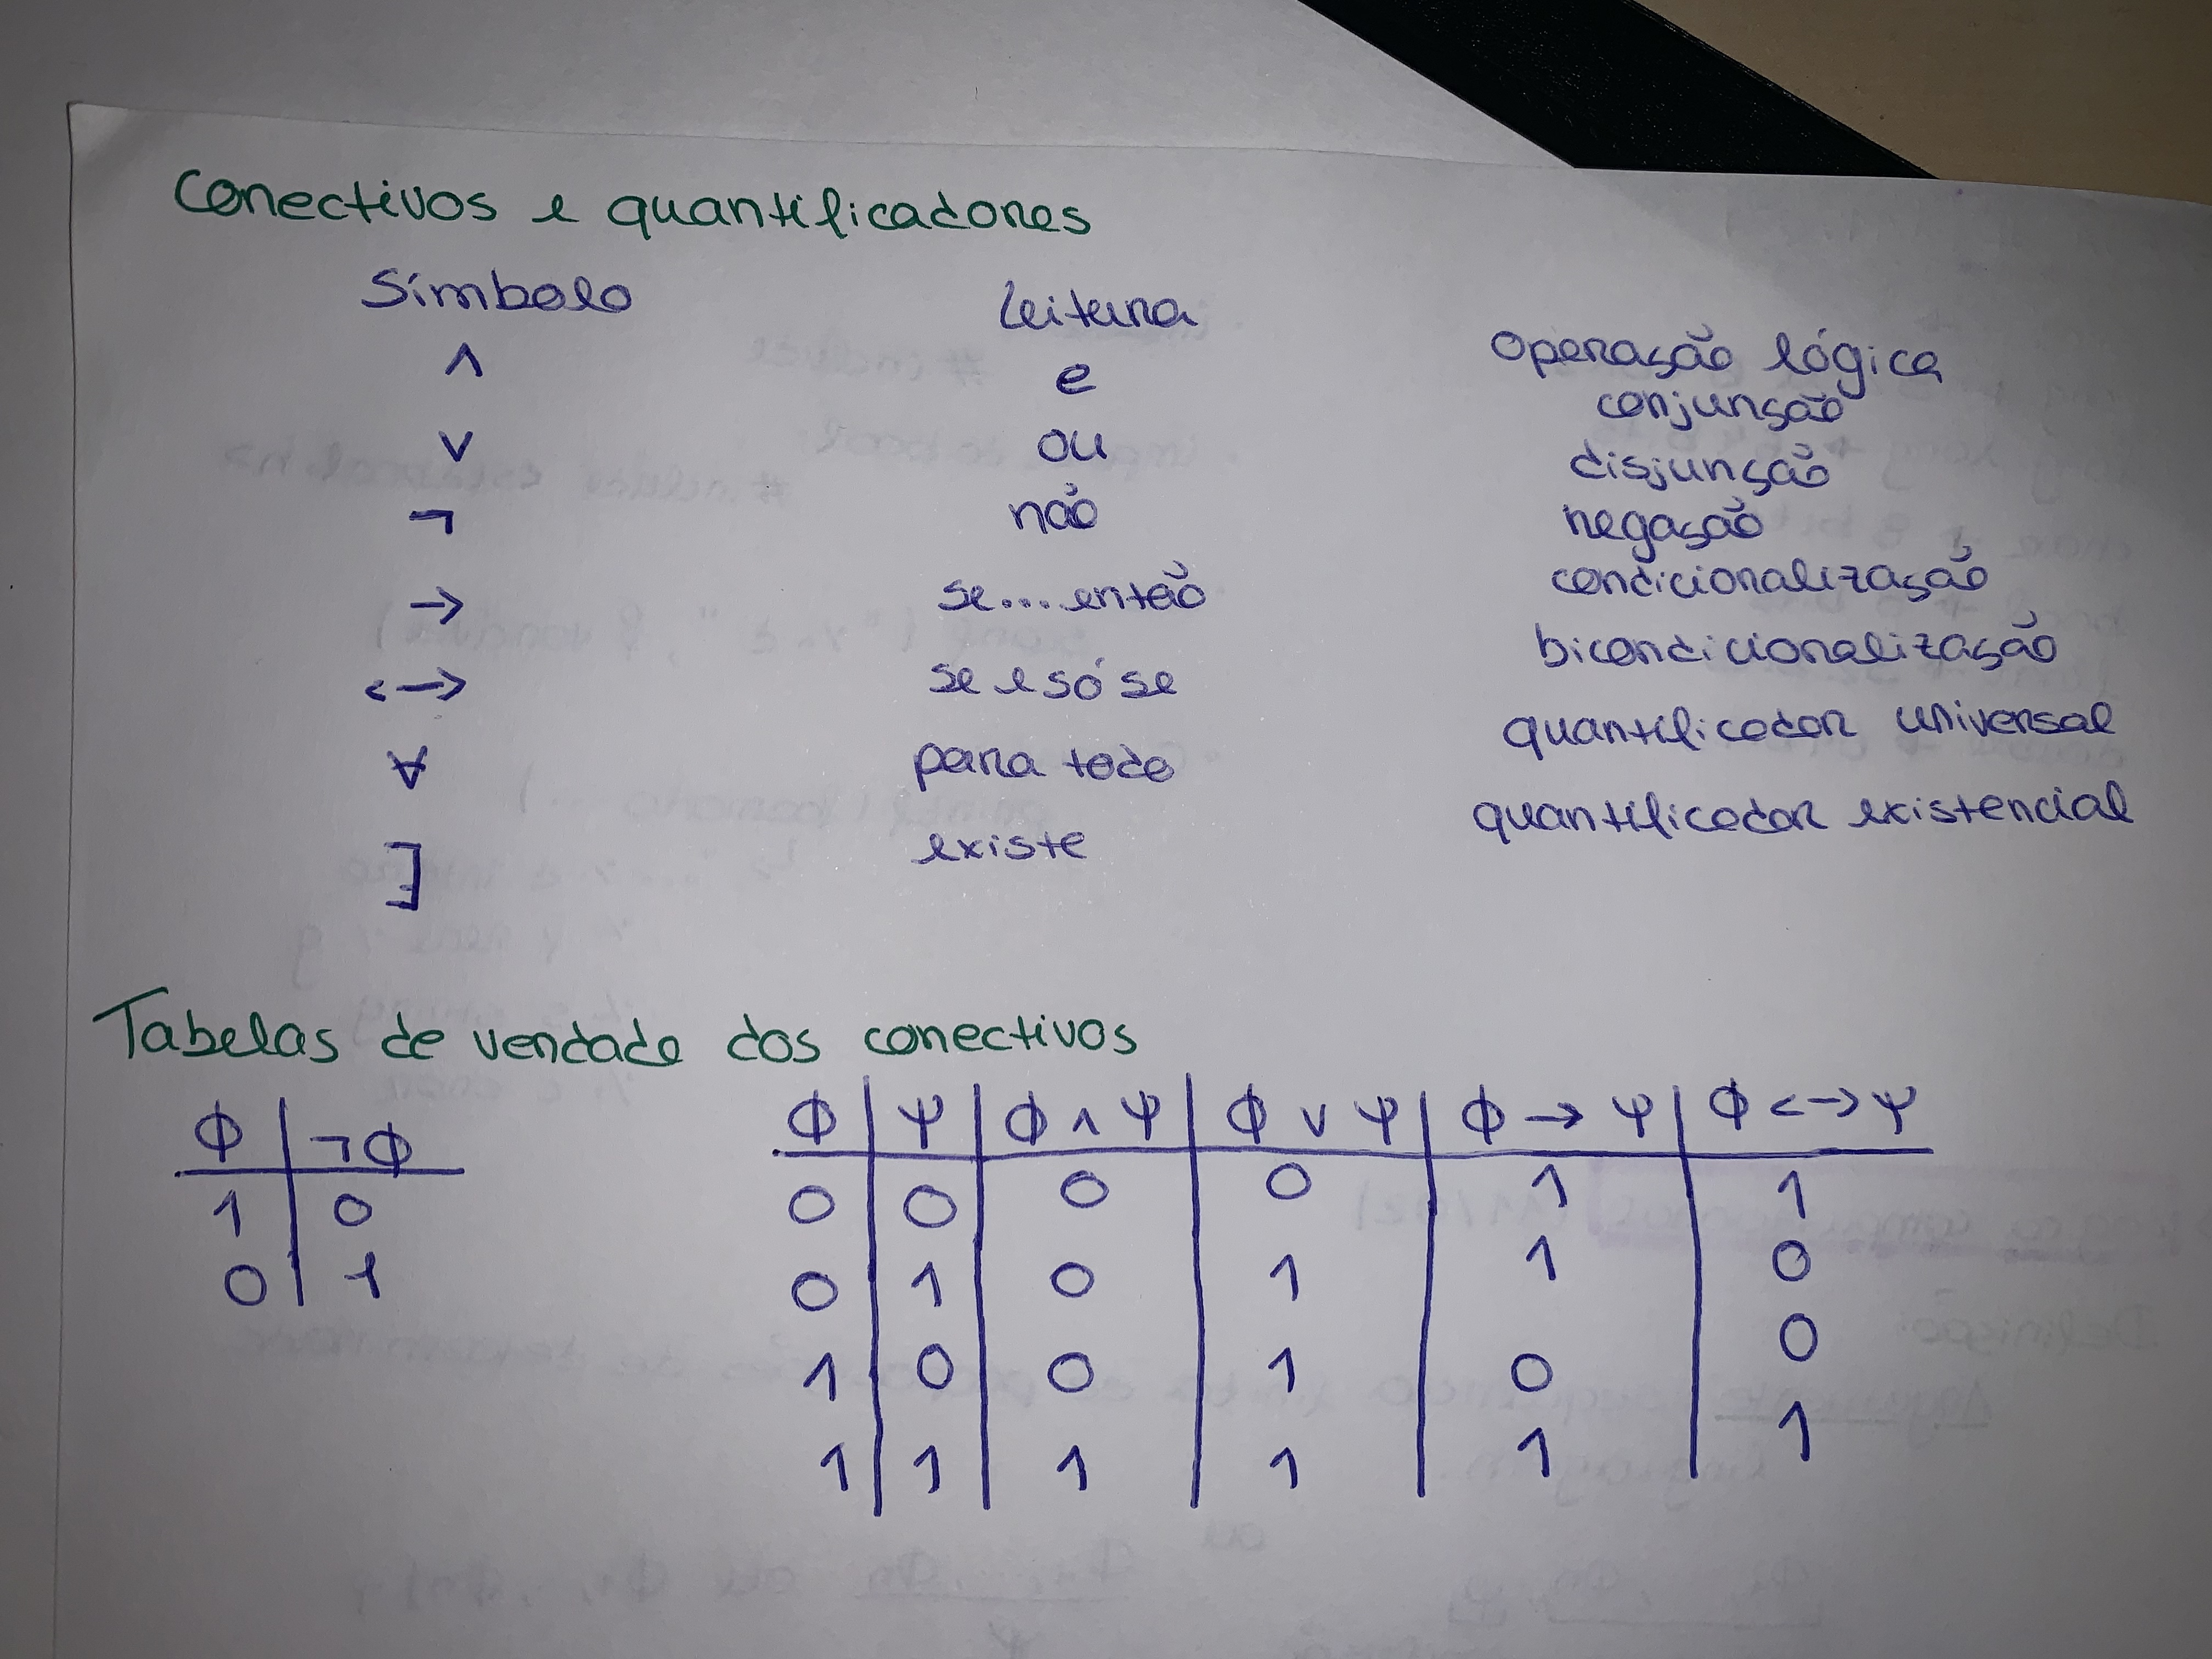 Conectivos e quantificadores
Símbolo Leitura Operação lógica
∧ e conjunção
∨ ou disjunção
¬ não negação
→ se....então condicionalização
<-> se e só se bicondicionalização
∀ para todo quantificador universal
∃ existe quantificador existencial
Tabelas de verdade dos conectivos
Φ ¬Φ
1 0
0 1
Φ Ψ Φ ∧ Ψ Φ ∨ Ψ Φ → Ψ Φ <-> Ψ
0 0 0 0 1 1
0 1 0 1 1 0
1 0 0 1 0 0
1 1 1 1 1 1